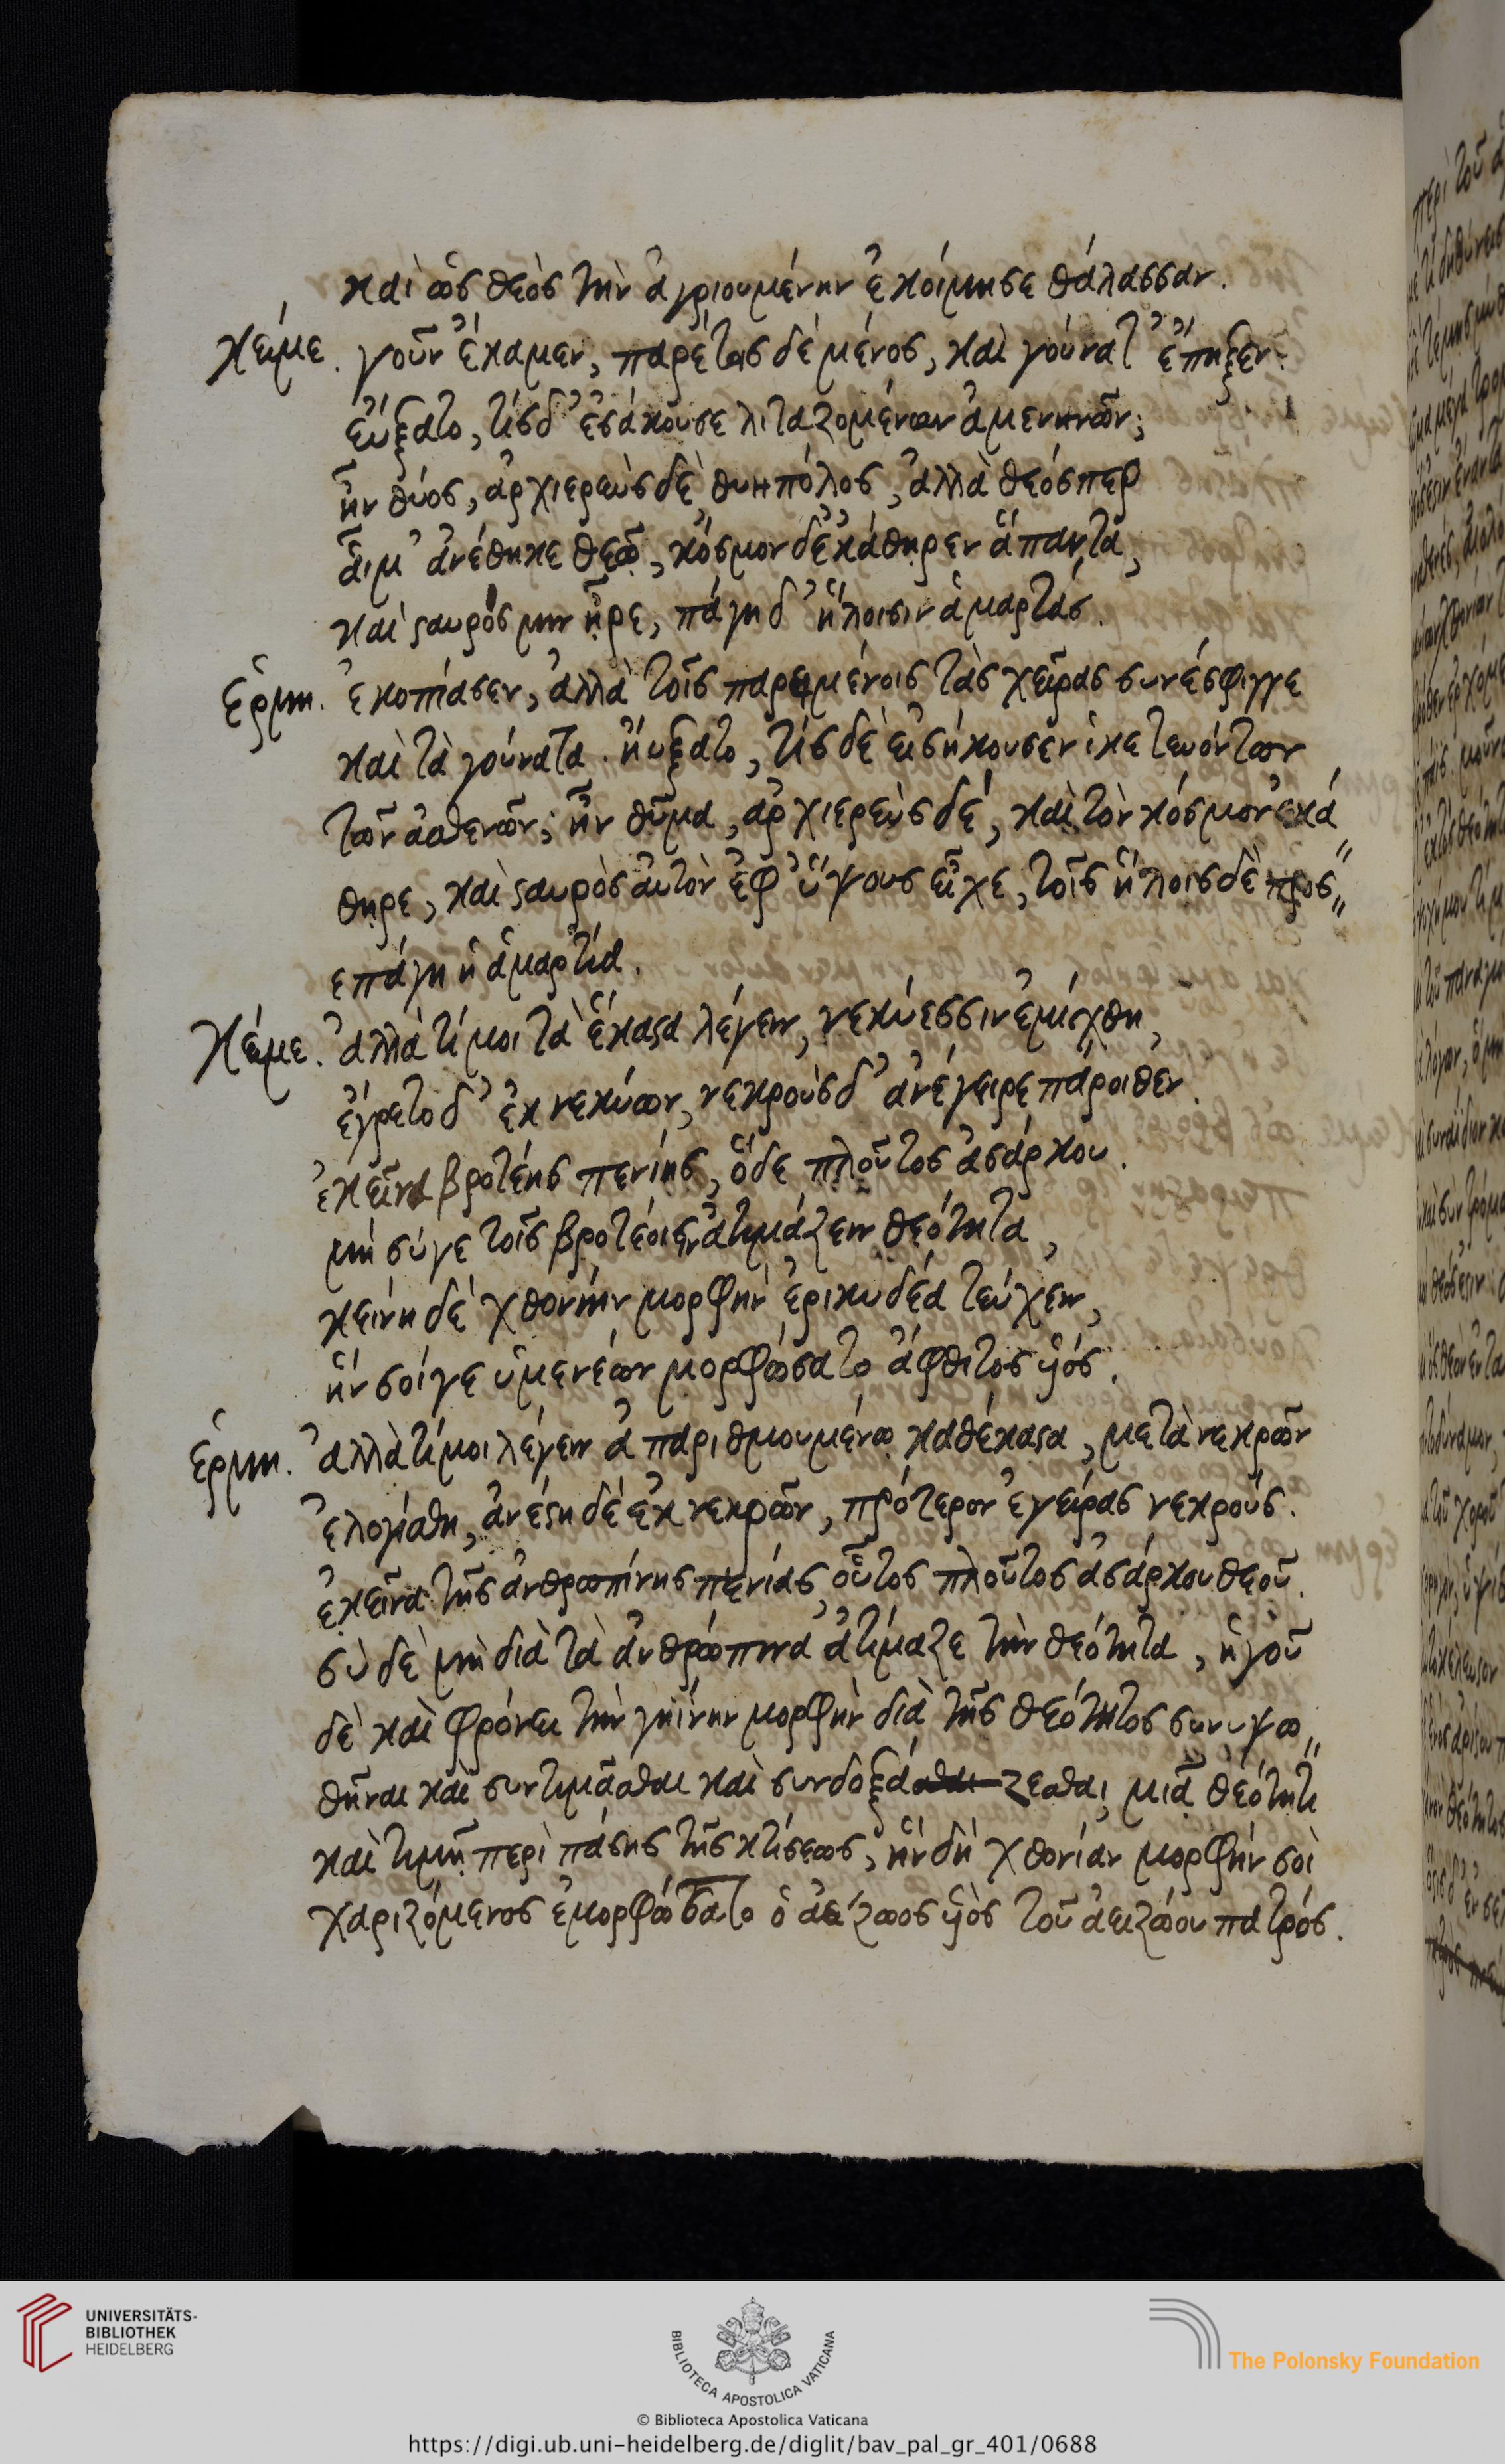 καὶ ὡς θεὸς τὴν ἀγριουμένην ἐκοίμησε θάλασσαν.
κείμε. γοῦν ἔκαμεν, παρέτοις δὲ μένος, καὶ γούνατ᾽ ἔπηξεν.
εὔξατο, τίς δ᾽ ἐσάκουσε λιταζομένων ἀμενηνῶν;
ἦν θύος, ἀρχιερεὺς δὲ θυηπόλος, ἀλλὰ θεός περ
αἷμ᾽ ἀνέθηκε θεῷ, κόσμον δ᾽ ἐκάθηρεν ἅπαντα,
καὶ σταυρός μιν ᾖρε, πάγη δ᾽ ἥλοισιν ἁμαρτάς.
ἑρμη. ἐκοπίασεν, ἀλλὰ τοῖς παρειμένοις τὰς χεῖρας συνέσφιγγε
καὶ τὰ γούνατα. ηὔξατο, τίς δὲ εἰσήκουσεν ἱκετευόντων
τῶν ἀσθενῶν; ἦν θῦμα, ἀρχιερεὺς δέ, καὶ τὸν κόσμον ἐκά„
θηρε, καὶ σταυρὸς αὐτὸν ἐφ᾽ ὕψους εἶχε, τοῖς ἥλοις δὲ προσ„
επάγη ἡ ἁμαρτία.
κείμε. ἀλλὰ τί μοι τὰ ἕκαστα λέγειν, νεκύεσσιν ἐμίχθη,
ἔγρετο δ᾽ ἐκ νεκύων, νεκροὺς δ᾽ ἀνέγειρε πάροιθεν.
ἐκεῖνα βροτέης πενίης, ὅδε πλοῦτος ἀσάρκου.
μὴ σύγε τοῖς βροτέοισιν ἀτιμάζειν θεότητα,
κείνη δὲ χθονίην μορφὴν ἐρικυδέα τεύχειν,
ἥν σοί γε ὑμενέων μορφώσατο ἄφθιτος υἱός.
ἑρμη. ἀλλὰ τί μοι λέγειν ἀπαριθμουμένῳ καθέκαστα, μετὰ νεκρῶν
ἐλογίσθη, ἀνέστη δὲ ἐκ νεκρῶν, πρότερον ἐγείρας νεκρούς.
ἐκεῖνα τῆς ἀνθρωπίνης πενίας, οὗτος πλοῦτος ἀσάρκου θεοῦ.
σὺ δὲ μὴ διὰ τὰ ἀνθρώπινα ἀτίμαζε τὴν θεότητα, ἡγοῦ
δὲ καὶ φρόνει τὴν γηίνην μορφὴν διὰ τῆς θεότητος συνυψω„
θῆναι καὶ συντιμᾶσθαι καὶ συνδοξάζεσθαι μιᾷ θεότητι
καὶ τιμῇ περὶ πάσης τῆς κτίσεως, ἣν δὴ χθονίαν μορφήν σοι
χαριζόμενος ἐμορφώσατο ὁ ἀείζωος υἱὸς τοῦ ἀειζώου πατρός.
UNIVERSITÄTS-
BIBLIOTHEK
HEIDELBERG
BIBLIOTECA APOSTOLICA VATICANA
The Polonsky Foundation
© Biblioteca Apostolica Vaticana
https://digi.ub.uni-heidelberg.de/diglit/bav_pal_gr_401/0688